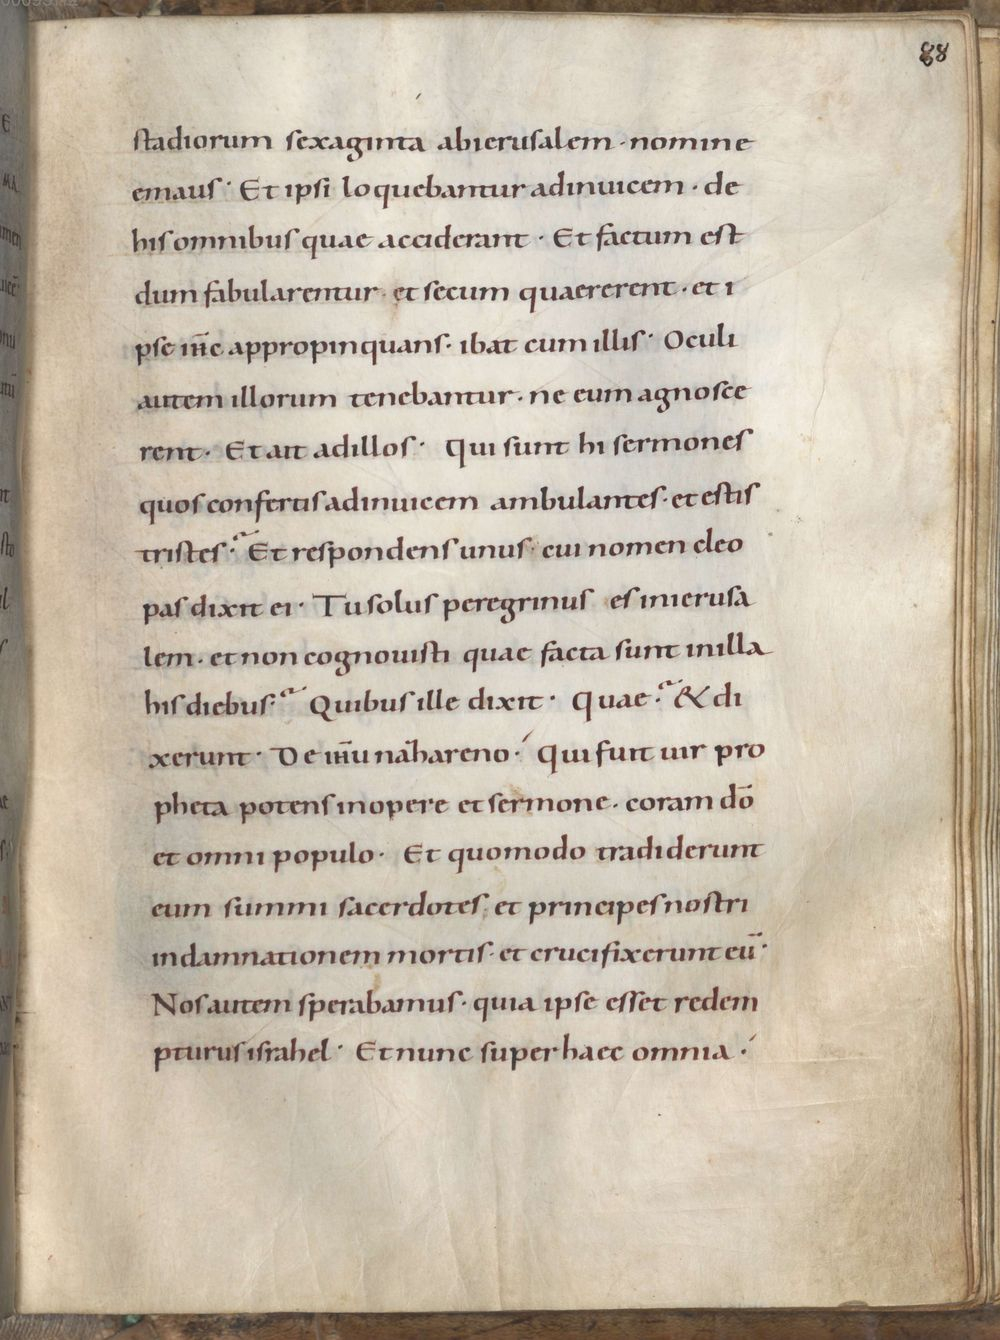 88
stadiorum sexaginta abierusalem · nomine
emaus · Et ipsi loquebantur adinuicem · de
his omnibus quae acciderant · Et factum est
dum fabularentur · et secum quaererent · et i
pse ih̅c appropinquans · ibat cum illis · Oculi
autem illorum tenebantur · ne eum agnosce
rent · Et ait adillos · Qui sunt hi sermones
quos confertis adinuicem ambulantes · et estis
tristes? Et respondens unus · cui nomen cleo
pas dixit ei · Tu solus peregrinus es inierusa
lem · et non cognouisti quae facta sunt inilla
his diebus? Quibus ille dixit · Quae? & di
xerunt · De ih̅u nazareno · Qui fuit uir pro
pheta potens inopere et sermone · coram do̅
et omni populo · Et quomodo tradiderunt
eum summi sacerdotes · et principes nostri
indamnationem mortis · et crucifixerunt eu̅ ·
Nos autem sperabamus · quia ipse esset redem
pturus israhel · Et nunc super haec omnia ·